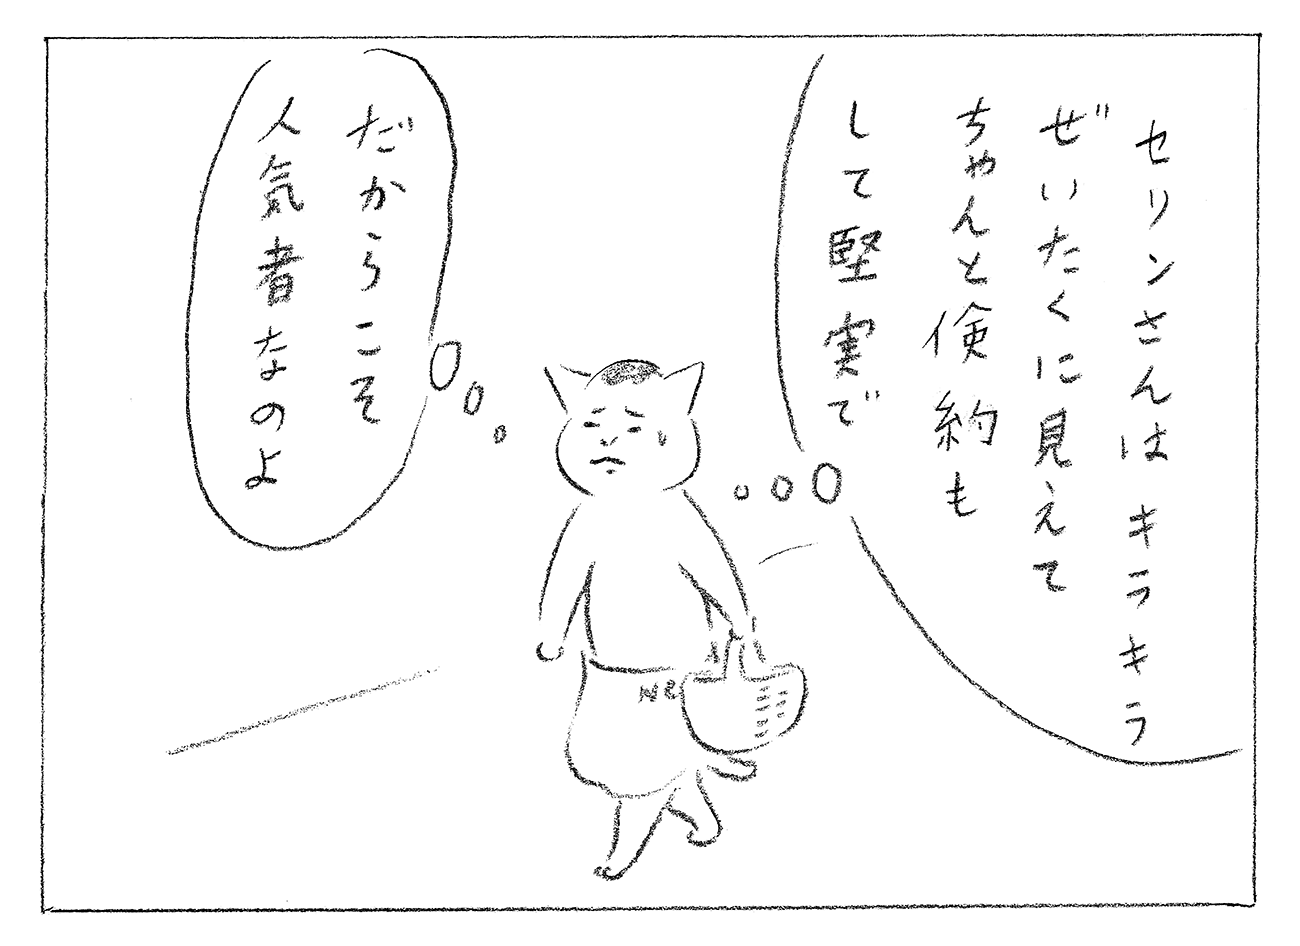 セリンさんはキラキラ
ぜいたくに見えて
ちゃんと倹約も
して堅実で
だからこそ
人気者なのよ